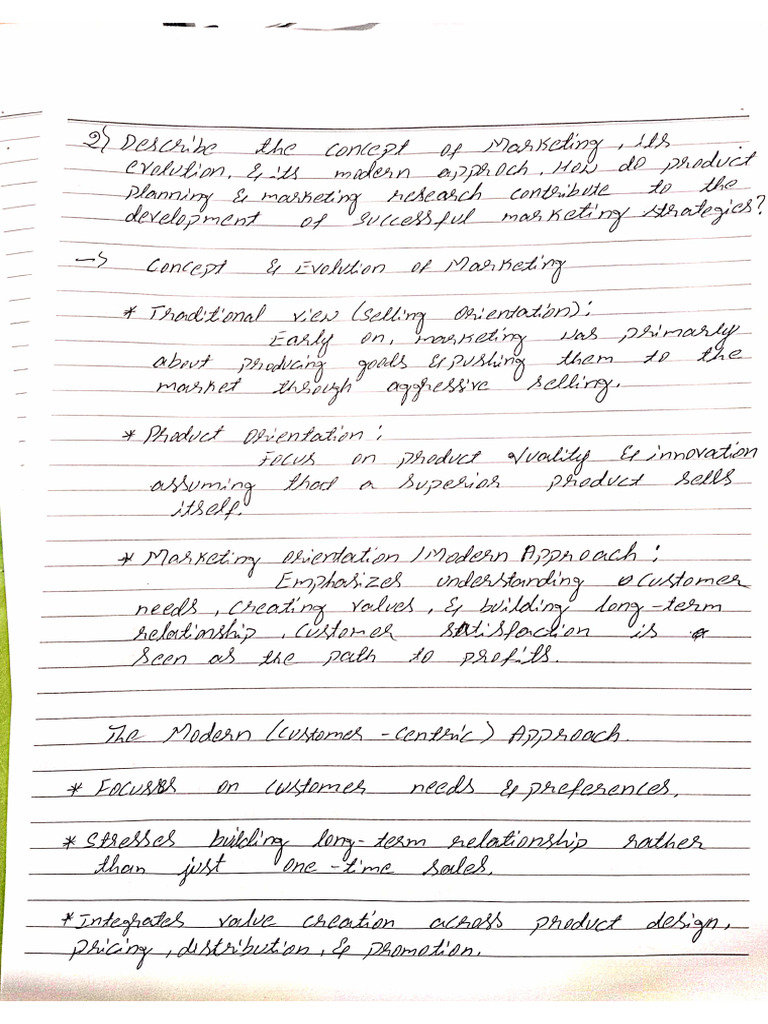 2) Describe the concept of Marketing, its
evolution, & its modern approch. How do product
planning & marketing research contribute to the
development of successful marketing strategies?
→ Concept & Evolution of Marketing
* Traditional view (selling orientation):
Early on, marketing was primarly
about producing goods & pushing them to the
market through aggressive selling.
* Product orientation:
Focus on product quality & innovation
assuming that a superior product sells
itself.
* Marketing orientation / Modern Approach:
Emphasizes understanding customer
needs, creating values, & building long-term
relationship, customer satisfaction is
seen as the path to profits.
The Modern (customer-centric) Approach.
* Focuses on customer needs & preferences.
* Stresses building long-term relationship rather
than just one-time sales.
* Integrates value creation across product design,
pricing, distribution, & promotion.